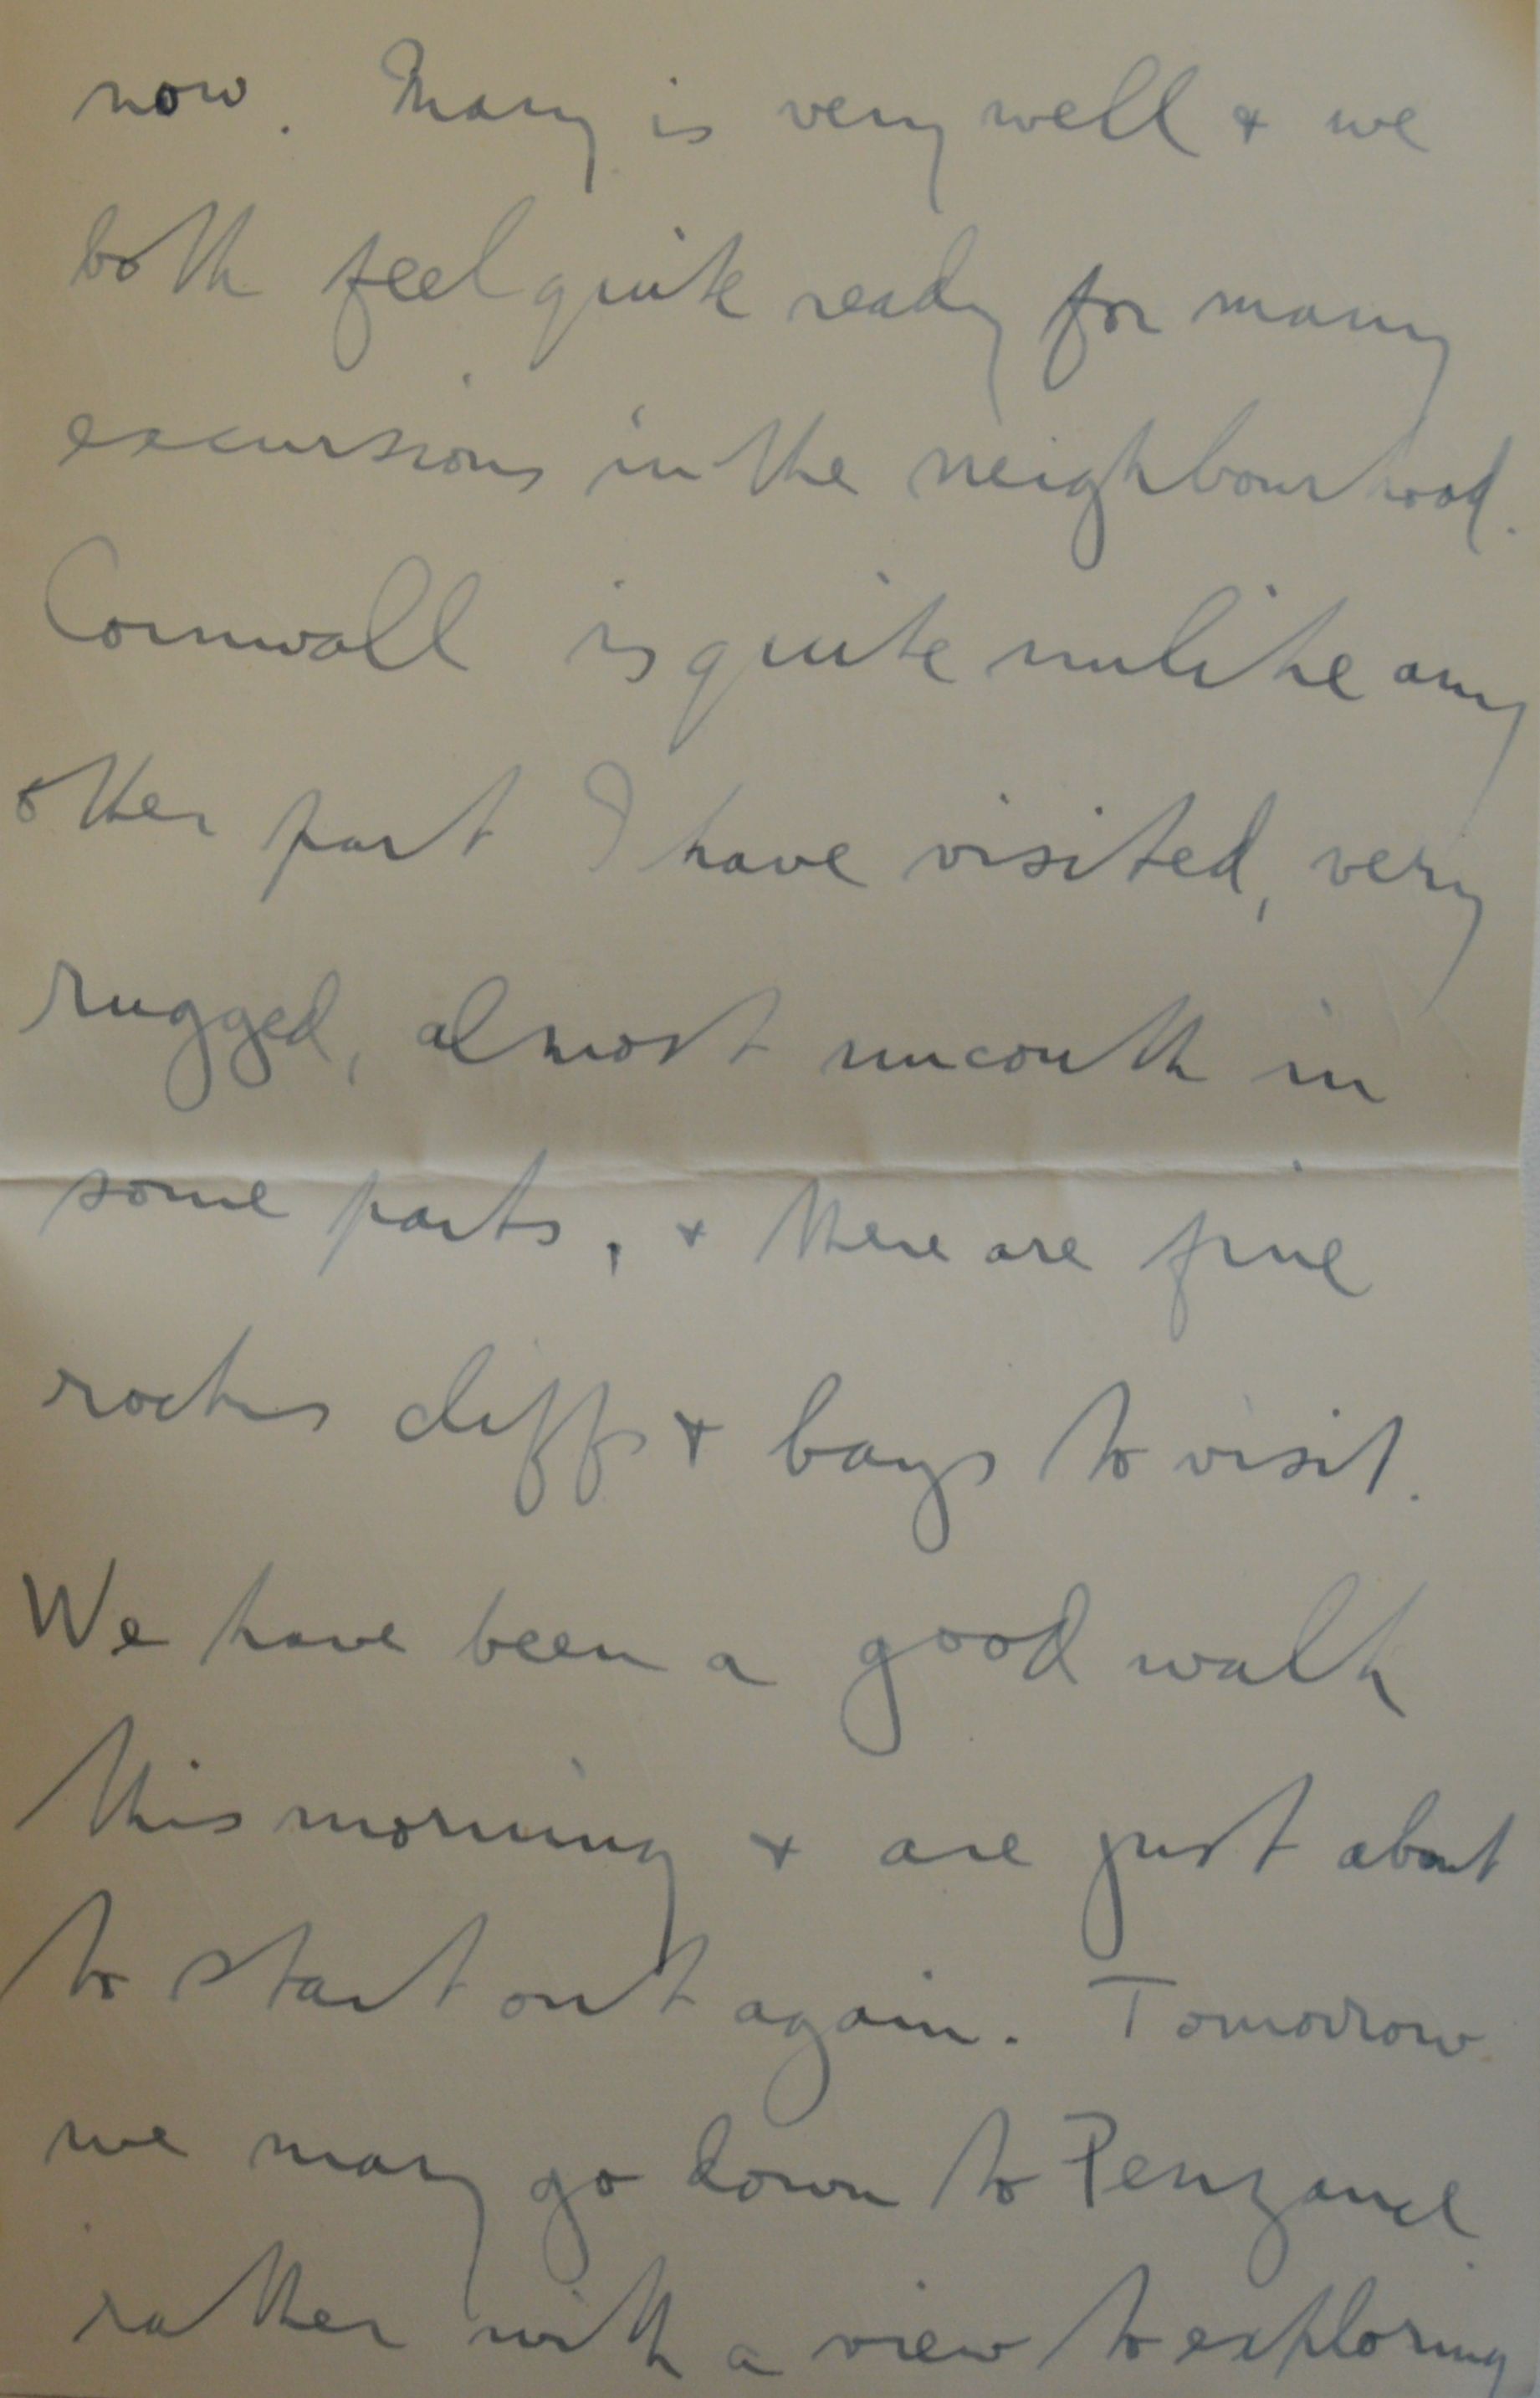 now. Mary is very well & we
both feel quite ready for many
excursions in the neighbourhood.
Cornwall is quite unlike any
other part I have visited, very
rugged, almost uncouth in
some parts, & there are fine
rocks cliffs & bays to visit.
We have been a good walk
this morning & are just about
to start out again. Tomorrow
we may go down to Penzance
rather with a view to exploring